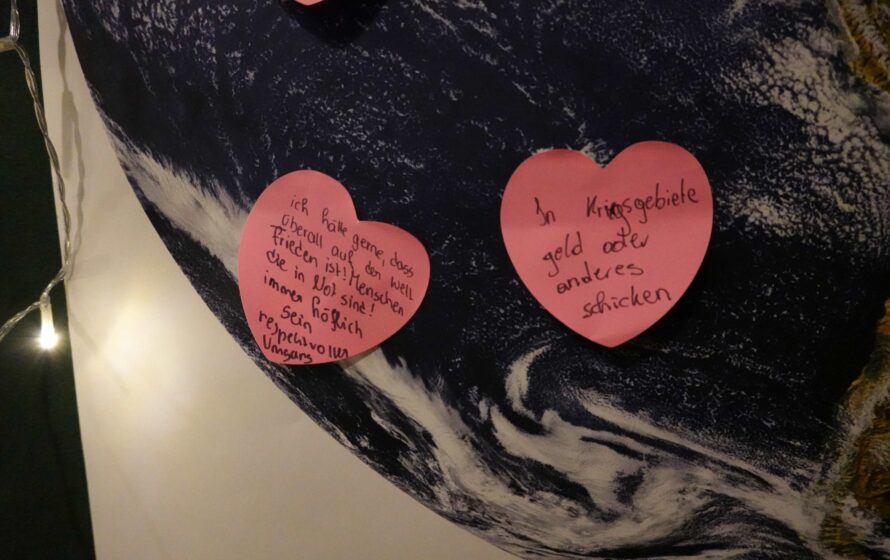 ich hätte gerne, dass
überall auf der Welt
Frieden ist! Menschen
die in Not sind!
immer höflich
sein
respektvoller
Umgang
In Krigsgebiete
geld oder
anderes
schicken